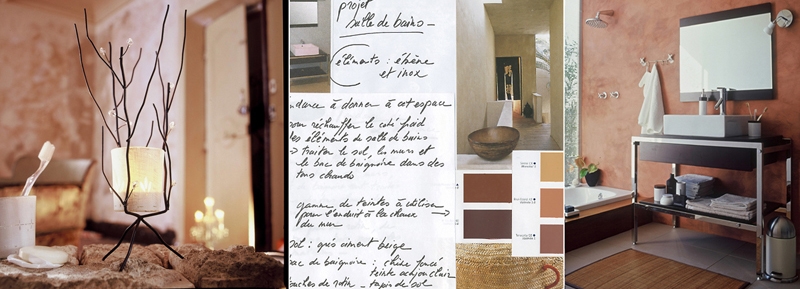 projet
salle de bains -
éléments : ébène
et inox
dance à donner à cet espace
pour réchauffer le coté froid
des éléments de salle de bains
→ traiter le sol, les murs et
le bac de baignoire dans des
tons chauds
gamme de teintes à utiliser
pour l'enduit à la chaux →
du mur
sol : gris ciment beige
bac de baignoire : chêne foncé
teinte acajou clair
touches de rotin - tapis de sol